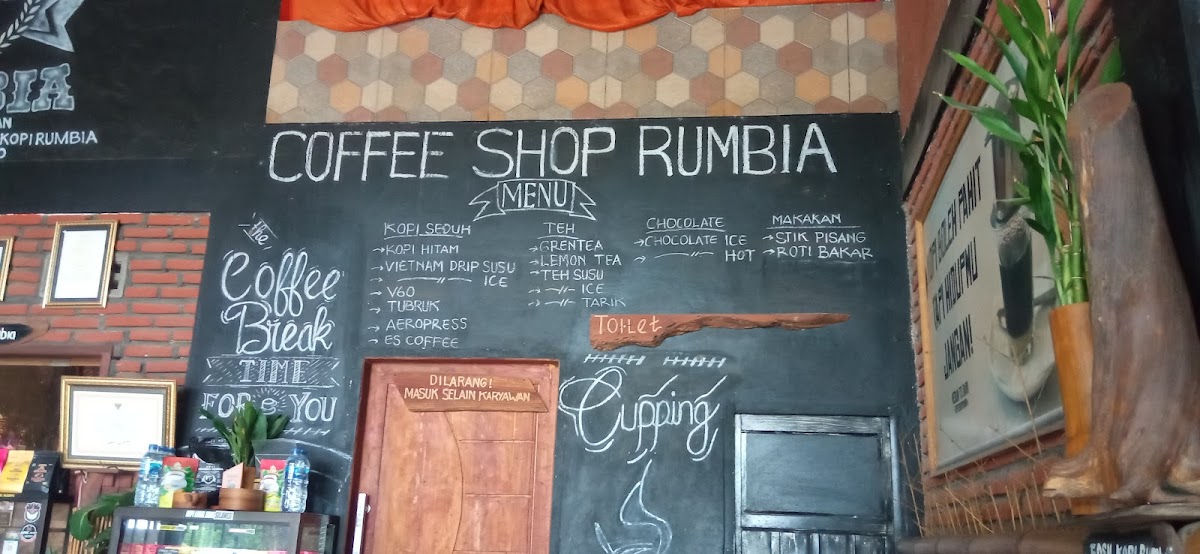 BIA
AN
KOPI RUMBIA
COFFEE SHOP RUMBIA
MENU
KOPI SEDUH
→ KOPI HITAM
→ VIETNAM DRIP SUSU
→ —//— ICE
→ V60
→ TUBRUK
→ AEROPRESS
→ ES COFFEE
TEH
→ GRENTEA
→ LEMON TEA
→ TEH SUSU
→ —//— ICE
→ —//— TARIK
CHOCOLATE
→ CHOCOLATE ICE
→ —//— HOT
MAKAKAN
→ STIK PISANG
→ ROTI BAKAR
The
Coffee
Break
TIME
FOR & YOU
TOILET
DILARANG!
MASUK SELAIN KARYAWAN
Cupping
KOPI BOLEH PAHIT
TAPI HIDUPMU
JANGAN!